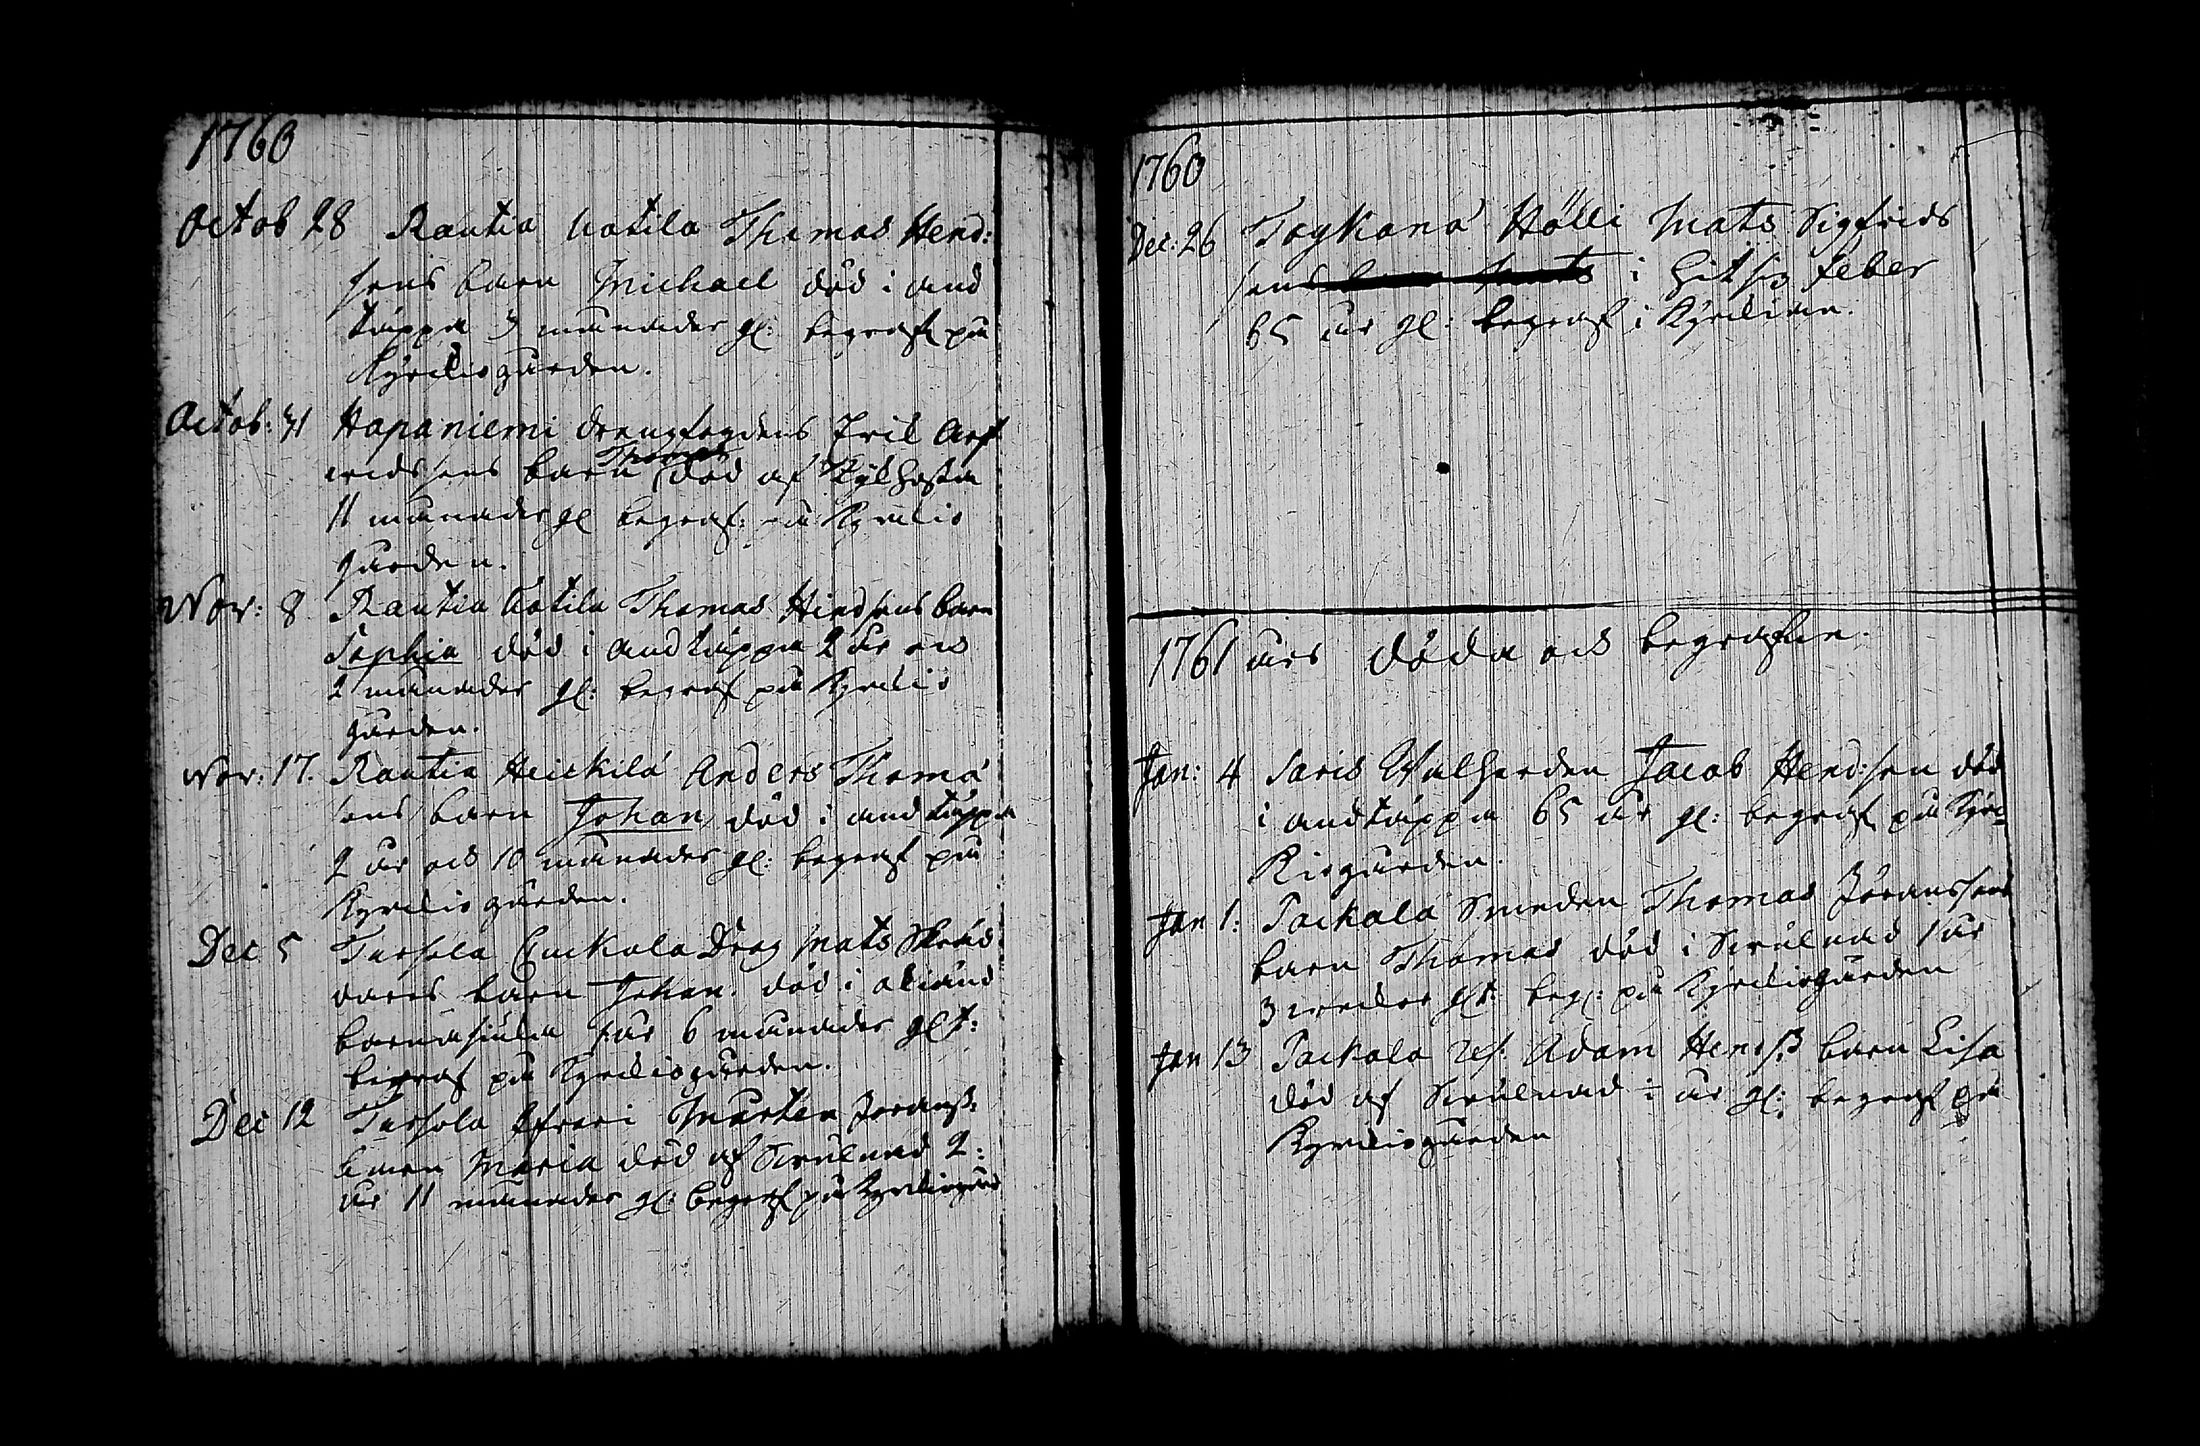 1760
Octob 28 Rautia Uotila Thomas Hend:
sens barn Michael död i and
täppa 3 månader gl: begraf på
Kyrckiogården.
Octob: 31 Hapaniemi drengfogdens Eric Arf
widssens barn Thomas död af Kikhosta
11 månader gl begraf: på Kyrckio
gården.
Nov: 8 Rautia Uotila Thomas Hindsens barn
Sophia död i andtäppa 2 år och
2 månader gl: begraf på Kyrckio
gården.
Nov: 17. Rautia Heickilä Anders Thomæ
sens barn Johan död i andtäppa
2 år och 10 månader gl: begraf på
Kyrckiogården.
Dec 5 Tursola Drag Mats Skräd
dares barn Johan död i okänd
barnasiuka 1 år 6 månader glt:
begraf på Kyrckiogården.
Dec 12 Tursola Mårten Joranss:
Maria död af 2:
år 11 månader gl: begraf på Kyrckiogård
1760
Dec: 26 Toykana Hölli Mats Sigfrids
sens i hitsig feber
65 år gl: begraf i Kyrckian.
1761 års döda och begrafne.
Jan: 4 Saris Jacob Hend:sen död
i andtäppa 65 år gl: begraf på Kyrc
Kiogården.
Jan 1: Packala Smeden Thomas Joranssens
barn Thomas död i 1 år
3 weckor glt: begr: på Kyrckiogården
Jan 13 Packala Adam Hends: barn Lisa
död af år gl: begraf på
Kyrckiogården